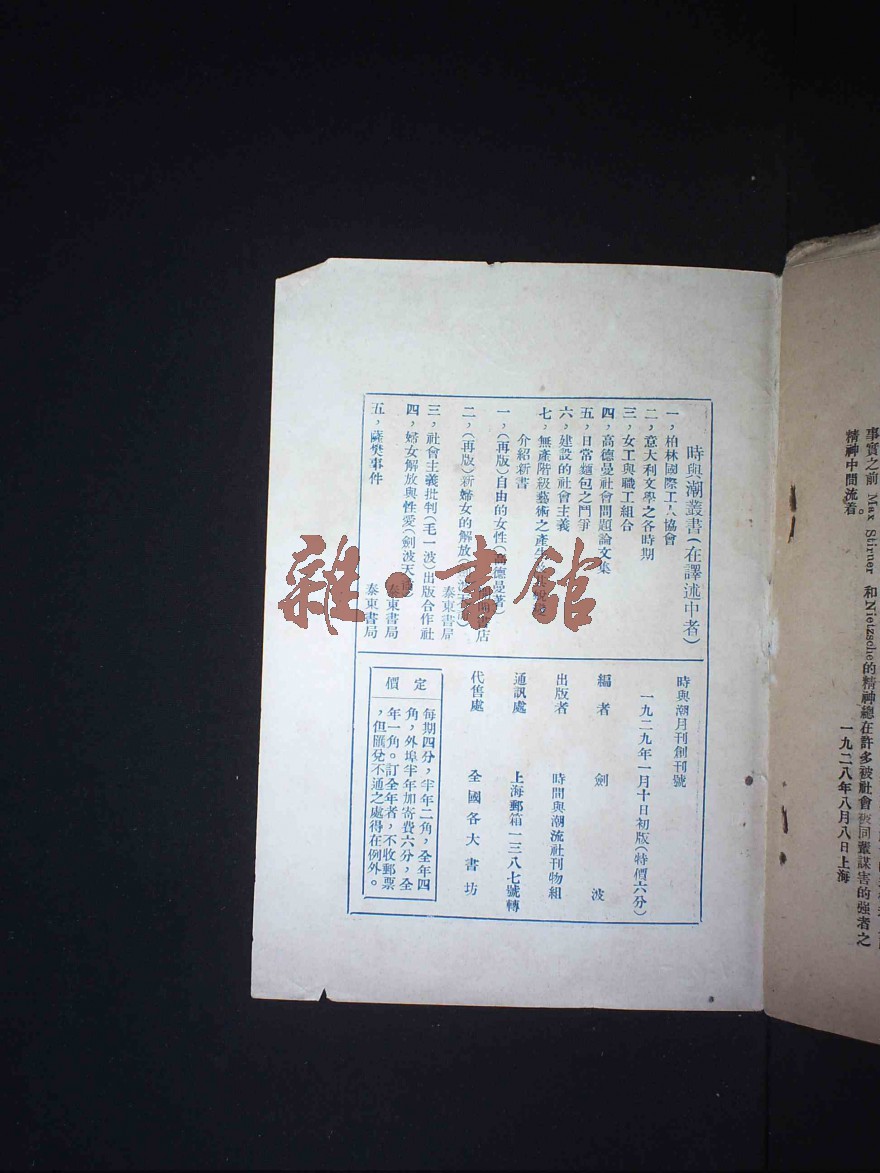 事實之前 Max Stirner 和Nietzsche的精神總在許多被社會
謀害的強者之
精神中間流着。
一九二八年八月八日上海
時與潮叢書(在譯述中者)
一，柏林國際工人協會
二，意大利文學之各時期
三，女工與職工組合
四，高德曼社會問題論文集
五，日常麵包之鬥爭
六，建設的社會主義
七，無產階級藝術之產生
介紹新書
一，(再版)自由的女性(高德曼著)
書店
二，(再版)新婦女的解放
泰東書局
三，社會主義批判(毛一波)出版合作社
四，婦女解放與性愛(劍波天
泰東書局
五，薩樊事件
泰東書局
時與潮月刊創刊號
一九二九年一月十日初版(特價六分)
編者 劍波
出版者 時間與潮流社刊物組
通訊處 上海郵箱一三八七號轉
代售處 全國各大書坊
定價
每期四分，半年二角，全年四
角，外埠半年加寄費六分，全
年一角。訂全年者，不收郵票
，但匯兌不通之處得在例外。
雜·書館